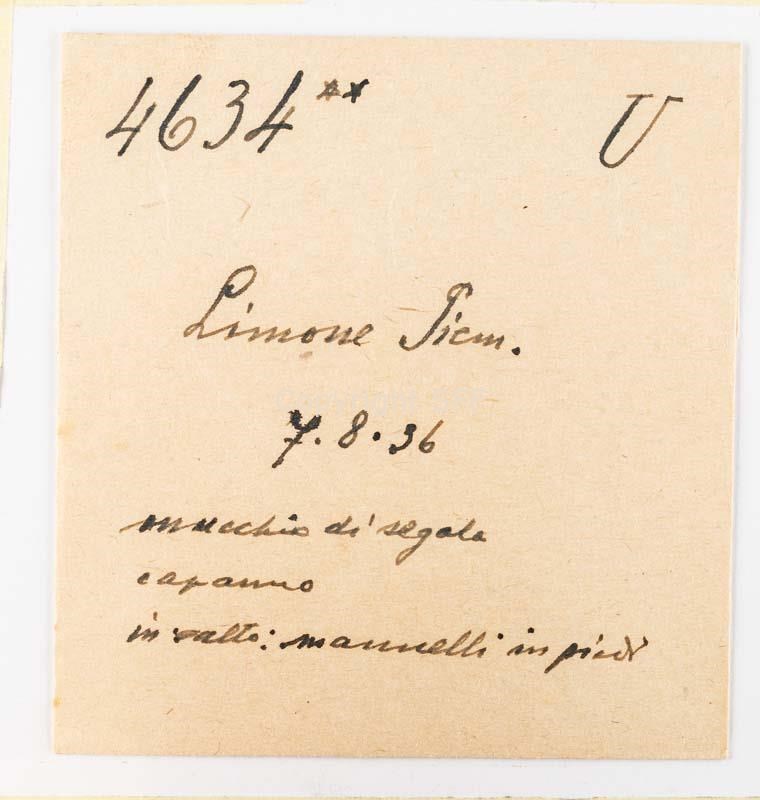 4634** U
Limone Piem.
7.8.36
mucchio di segala
capanno
in alto: mannelli in piedi